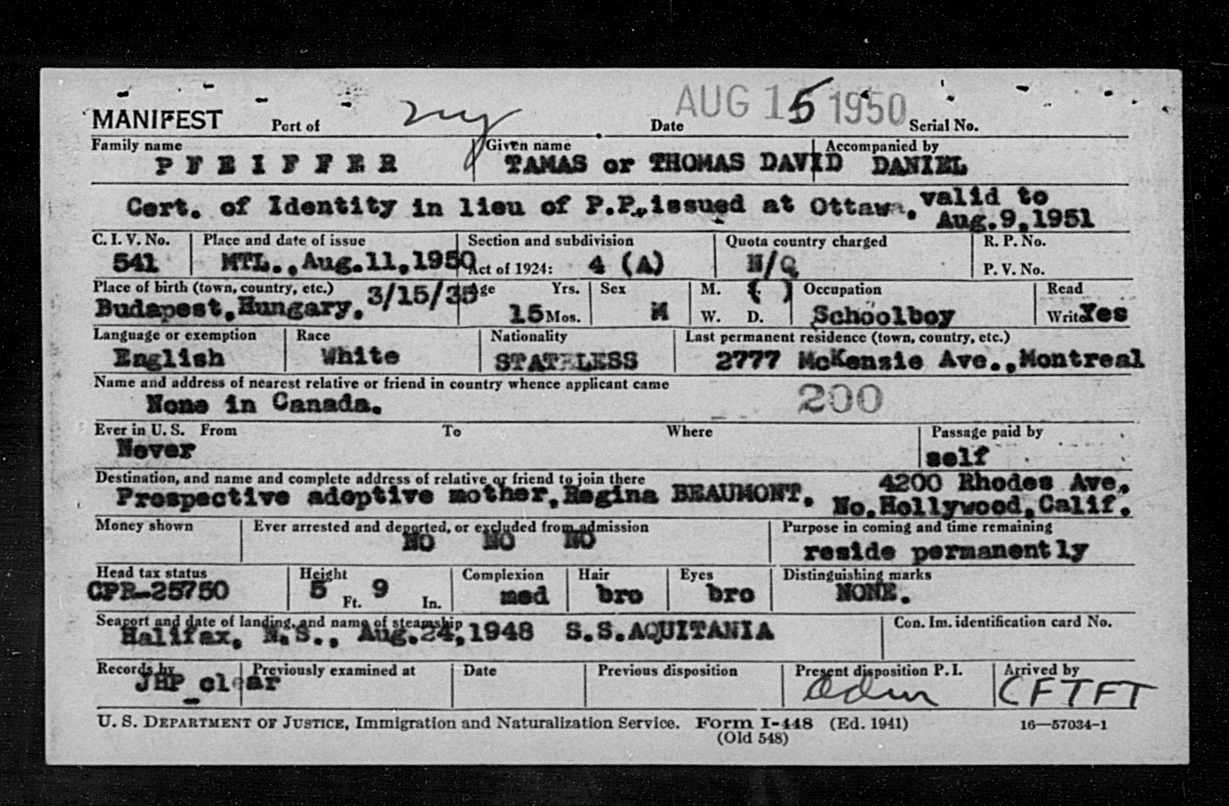 MANIFEST Port of ny Date AUG 15 1950 Serial No.
Family name Given name Accompanied by
PFEIFFER TAMAS or THOMAS DAVID DANIEL
Cert. of Identity in lieu of P.P., issued at Ottawa, valid to
Aug.9,1951
C. I. V. No. Place and date of issue Section and subdivision Quota country charged R. P. No.
541 MTL., Aug.11,1950 Act of 1924: 4 (A) N/Q P. V. No.
Place of birth (town, country, etc.) Age Yrs. Sex M. Occupation Read
Budapest, Hungary. 3/15/35 15 Mos. M W. D. Schoolboy Write Yes
Language or exemption Race Nationality Last permanent residence (town, country, etc.)
English White STATELESS 2777 McKenzie Ave., Montreal
Name and address of nearest relative or friend in country whence applicant came
None in Canada. 200
Ever in U. S. From To Where Passage paid by
Never self
Destination, and name and complete address of relative or friend to join there 4200 Rhodes Ave.,
Prospective adoptive mother, Regina BEAUMONT. No.Hollywood, Calif.
Money shown Ever arrested and deported, or excluded from admission Purpose in coming and time remaining
NO NO NO reside permanently
Head tax status Height Complexion Hair Eyes Distinguishing marks
CPR-25750 5 Ft. 9 In. med bro bro NONE.
Seaport and date of landing, and name of steamship Con. Im. identification card No.
Halifax, N.S., Aug.24,1948 S.S.AQUITANIA
Records by Previously examined at Date Previous disposition Present disposition P. I. Arrived by
JHP clear Adm CFTFT
U. S. DEPARTMENT OF JUSTICE, Immigration and Naturalization Service. Form I-448 (Ed. 1941) 16—57034-1
(Old 548)